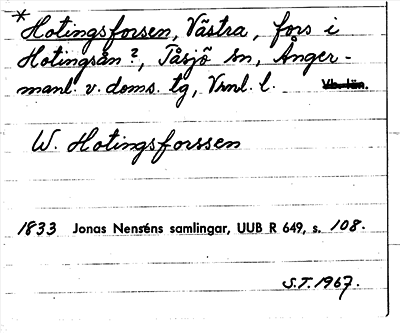 *Hotingsforsen, Västra, fors i
Hotingsån?, Tåsjö sn, Ånger-
manl. v. doms. tg, Vrnl. l. Vb. län.
W. Hotingsforssen
1833 Jonas Nenséns samlingar, UUB R 649, s. 108.
S.T. 1967.